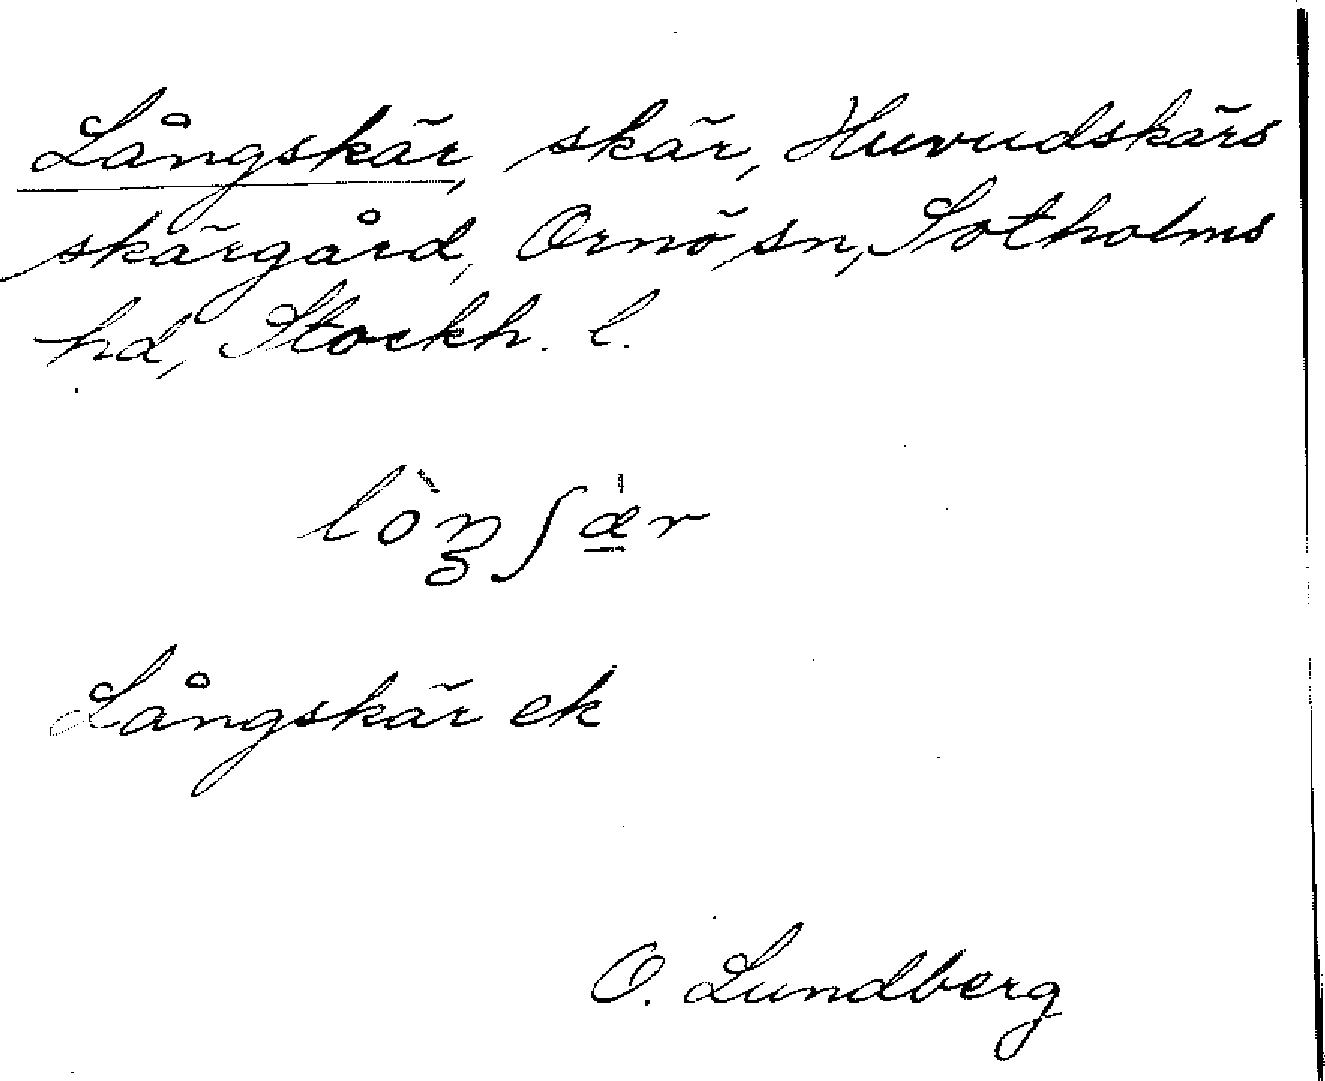 Långskär, skär, Huvudskärs
skärgård, Ornö sn, Sotholms
hd, Stockh. l.
Långskär ek
O. Lundberg